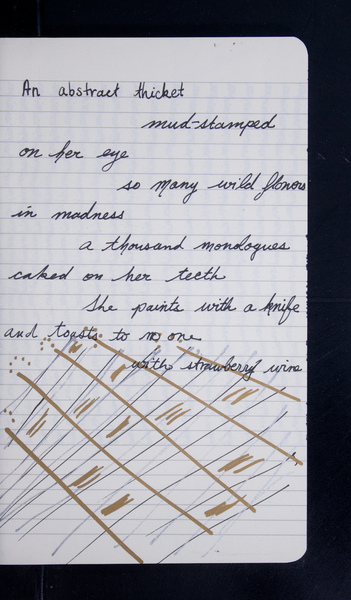 An abstract thicket
mud-stamped
on her eye
so many wild flavors
in madness
a thousand monologues
caked on her teeth
She paints with a knife
and toasts to no one
with strawberry wine